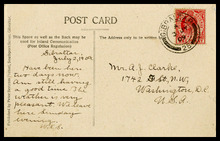 POST CARD
This Space as well as the Back may be
used for Inland Communication.
(Post Office Regulation)
The Address only to be written here.
Gibraltar,
July 2, 1909.
Have been here
two days now.
Am still having
a good time. The
weather is very
pleasant. We leave
here Sunday
evening.
Mr. A. J. Clarke,
1742 St. N.W.,
Washington, D.C.
U.S.A.